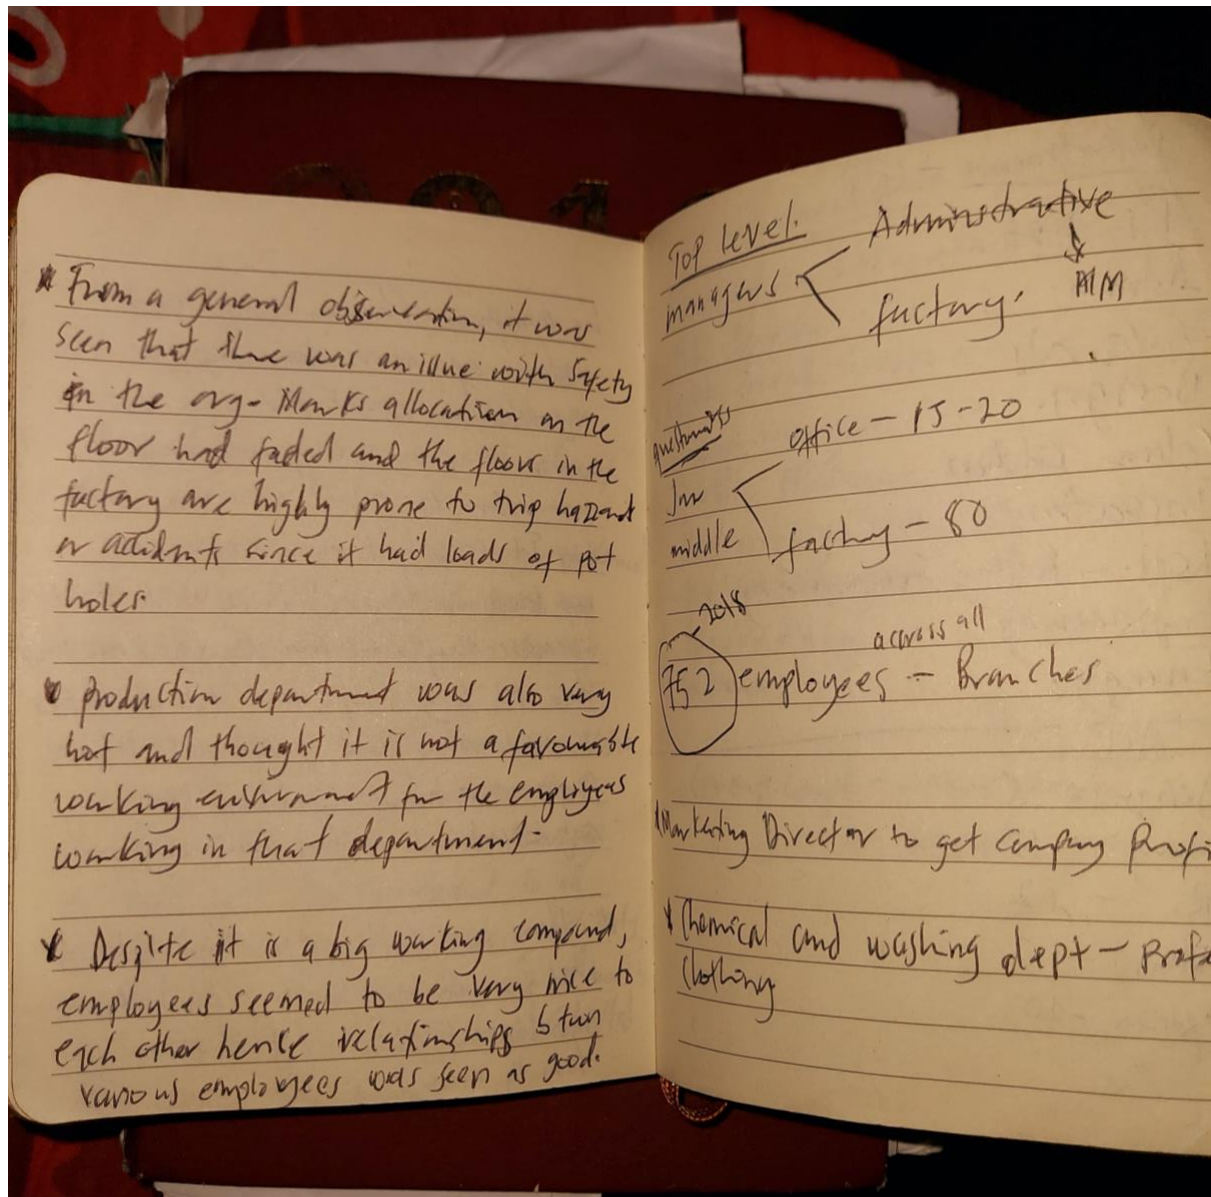 * From a general observation, it was
seen that there was an issue with Safety
in the org. Marks allocation on the
floor had faded and the floors in the
factory are highly prone to trip hazard
or accidents since it had loads of pot
holes
* production department was also very
hot and thought it is not a favourable
working environment for the employees
working in that department.
* Despite it is a big working compound,
employees seemed to be very nice to
each other hence relationships btwn
various employees was seen as good.
Top level.
managers
Administrative
factory.
office - 15-20
middle
factory - 80
2018
752 employees - Branches
across all
* Marketing Director to get company
* Chemical and washing dept -
clothing